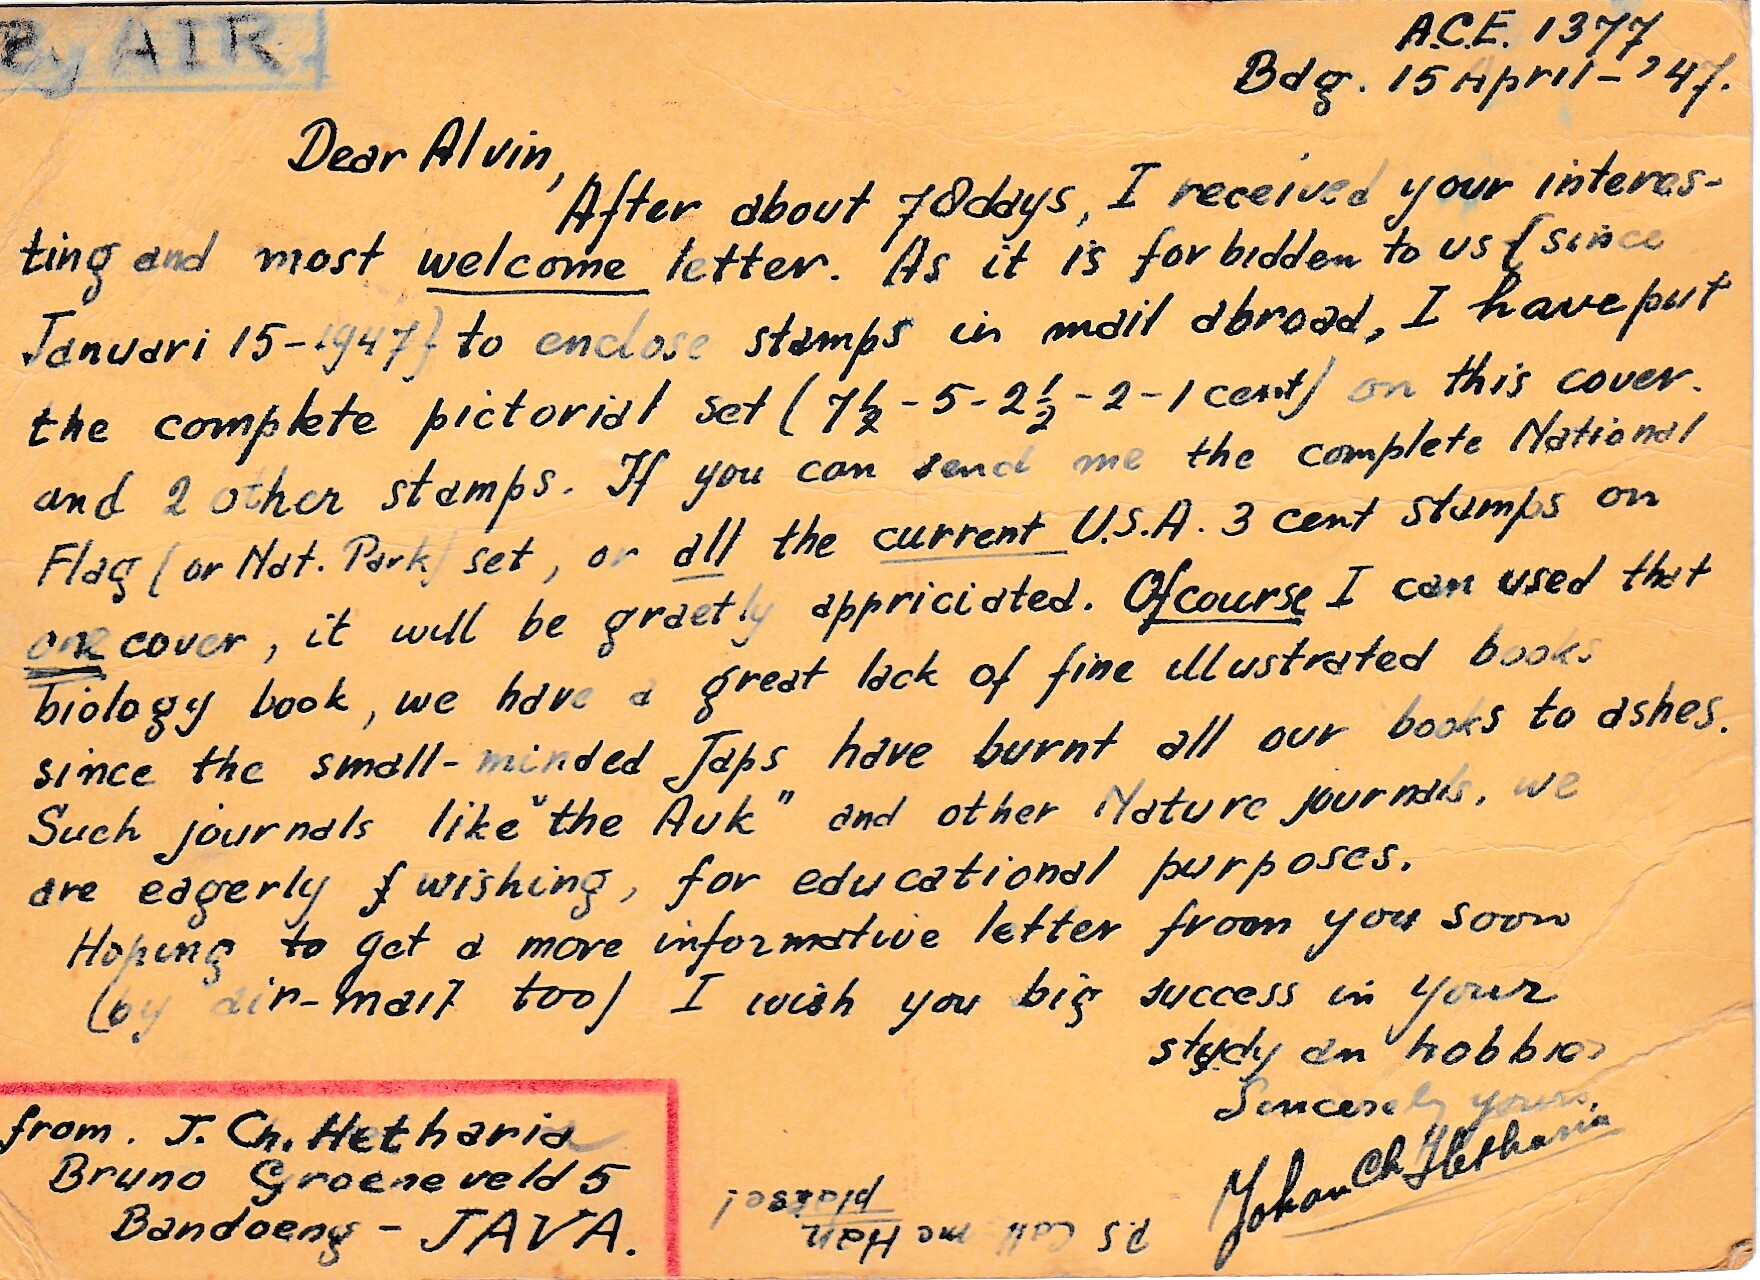 By AIR
A.C.E. 1377
Bdg. 15 April - '47.
Dear Alvin,
After about 70 days, I received your interes-
ting and most welcome letter. As it is forbidden to us (since
Januari 15-1947) to enclose stamps in mail abroad, I have put
the complete pictorial set (7½ - 5 - 2½ - 2 - 1 cent) on this cover.
and 2 other stamps. If you can send me the complete National
Flag (or Nat. Park) set, or all the current U.S.A. 3 cent stamps on
one cover, it will be graetly appriciated. Ofcourse I can used that
biology book, we have a great lack of fine illustrated books
since the small-minded Japs have burnt all our books to ashes.
Such journals like "the Auk" and other Nature journals, we
are eagerly wishing, for educational purposes.
Hoping to get a more informative letter from you soon
(by air-mail too) I wish you big success in your
study an hobbies
Sincerely yours,
Johan Ch Hetharia
from. J. Ch. Hetharia
Bruno Groeneveld 5
Bandoeng - JAVA.
P.S Call me Han
please!